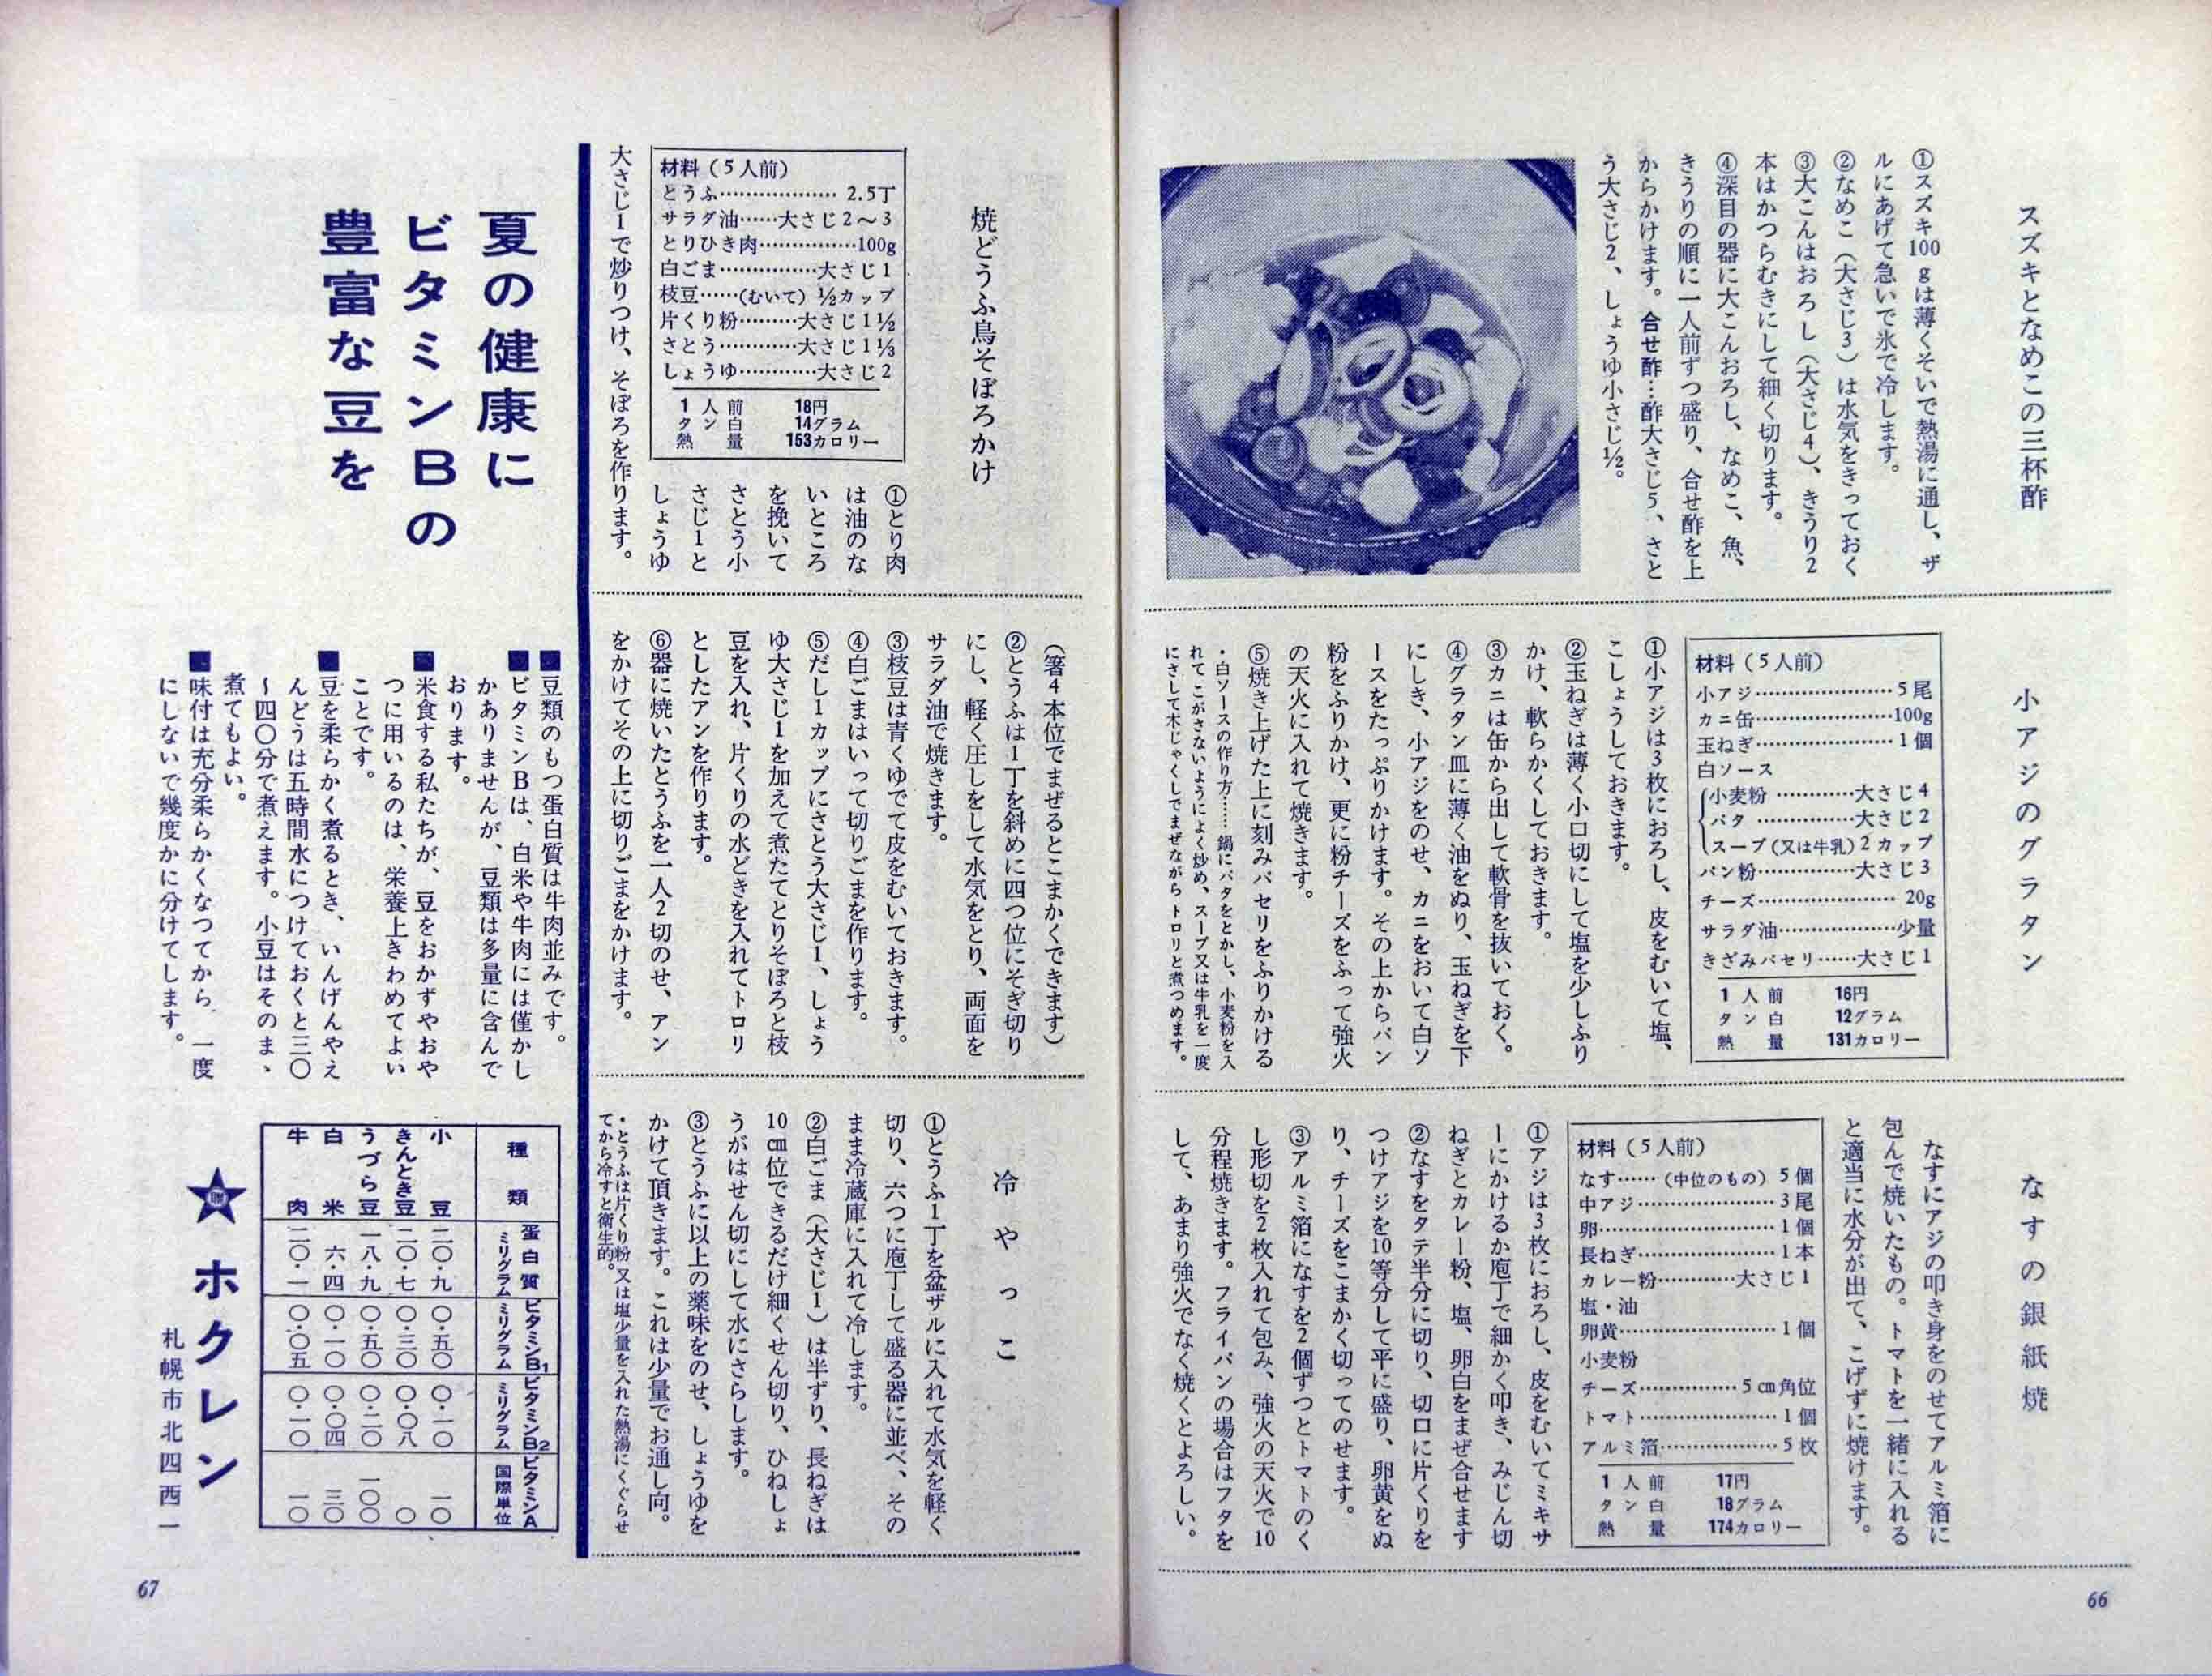 スズキとなめこの三杯酢
①スズキ100gは薄くそいで熱湯に通し、ザ
ルにあげて急いで氷で冷します。
②なめこ（大さじ3）は水気をきっておく
③大こんはおろし（大さじ4）、きうり2
本はかつらむきにして細く切ります。
④深目の器に大こんおろし、なめこ、魚、
きうりの順に一人前ずつ盛り、合せ酢を上
からかけます。合せ酢…酢大さじ5、さと
う大さじ2、しょうゆ小さじ½。
小アジのグラタン
材料（5人前）
小アジ…………………5尾
カニ缶…………………100g
玉ねぎ…………………1個
白ソース
小麦粉…………大さじ4
バタ……………大さじ2
スープ（又は牛乳）2カップ
パン粉……………大さじ3
チーズ…………………20g
サラダ油………………少量
きざみパセリ……大さじ1
1人前 16円
タン白 12グラム
熱量 131カロリー
①小アジは3枚におろし、皮をむいて塩、
こしょうしておきます。
②玉ねぎは薄く小口切にして塩を少しふり
かけ、軟らかくしておきます。
③カニは缶から出して軟骨を抜いておく。
④グラタン皿に薄く油をぬり、玉ねぎを下
にしき、小アジをのせ、カニをおいて白ソ
ースをたっぷりかけます。その上からパン
粉をふりかけ、更に粉チーズをふって強火
の天火に入れて焼きます。
⑤焼き上げた上に刻みパセリをふりかける
・白ソースの作り方……鍋にバタをとかし、小麦粉を入
れてこがさないようによく炒め、スープ又は牛乳を一度
にさして木じゃくしでまぜながらトロリと煮つめます。
なすの銀紙焼
なすにアジの叩き身をのせてアルミ箔に
包んで焼いたもの。トマトを一緒に入れる
と適当に水分が出て、こげずに焼けます。
材料（5人前）
なす……（中位のもの）5個
中アジ…………………3尾
卵………………………1個
長ねぎ…………………1本
カレー粉…………大さじ1
塩・油
卵黄……………………1個
小麦粉
チーズ……………5㎝角位
トマト…………………1個
アルミ箔………………5枚
1人前 17円
タン白 18グラム
熱量 174カロリー
①アジは3枚におろし、皮をむいてミキサ
ーにかけるか庖丁で細かく叩き、みじん切
ねぎとカレー粉、塩、卵白をまぜ合せます
②なすをタテ半分に切り、切口に片くりを
つけアジを10等分して平に盛り、卵黄をぬ
り、チーズをこまかく切ってのせます。
③アルミ箔になすを2個ずつとトマトのく
し形切を2枚入れて包み、強火の天火で10
分程焼きます。フライパンの場合はフタを
して、あまり強火でなく焼くとよろしい。
66
焼どうふ鳥そぼろかけ
材料（5人前）
とうふ………………2.5丁
サラダ油……大さじ2〜3
とりひき肉……………100g
白ごま……………大さじ1
枝豆……（むいて）½カップ
片くり粉………大さじ1½
さとう…………大さじ1⅓
しょうゆ…………大さじ2
1人前 18円
タン白 14グラム
熱量 153カロリー
①とり肉
は油のな
いところ
を挽いて
さとう小
さじ1と
しょうゆ
大さじ1で炒りつけ、そぼろを作ります。
（箸4本位でまぜるとこまかくできます）
②とうふは1丁を斜めに四つ位にそぎ切り
にし、軽く圧しをして水気をとり、両面を
サラダ油で焼きます。
③枝豆は青くゆでて皮をむいておきます。
④白ごまはいって切りごまを作ります。
⑤だし1カップにさとう大さじ1、しょう
ゆ大さじ1を加えて煮たてとりそぼろと枝
豆を入れ、片くりの水どきを入れてトロリ
としたアンを作ります。
⑥器に焼いたとうふを一人2切のせ、アン
をかけてその上に切りごまをかけます。
冷やっこ
①とうふ1丁を盆ザルに入れて水気を軽く
切り、六つに庖丁して盛る器に並べ、その
まま冷蔵庫に入れて冷します。
②白ごま（大さじ1）は半ずり、長ねぎは
10㎝位できるだけ細くせん切り、ひねしょ
うがはせん切にして水にさらします。
③とうふに以上の薬味をのせ、しょうゆを
かけて頂きます。これは少量でお通し向。
・とうふは片くり粉又は塩少量を入れた熱湯にくぐらせ
てから冷すと衛生的。
夏の健康に
ビタミンBの
豊富な豆を
■豆類のもつ蛋白質は牛肉並みです。
■ビタミンBは、白米や牛肉には僅かし
かありませんが、豆類は多量に含んで
おります。
■米食する私たちが、豆をおかずやおや
つに用いるのは、栄養上きわめてよい
ことです。
■豆を柔らかく煮るとき、いんげんやえ
んどうは五時間水につけておくと三〇
〜四〇分で煮えます。小豆はそのまゝ
煮てもよい。
■味付は充分柔らかくなつてから、一度
にしないで幾度かに分けてします。
種類 蛋白質ミリグラム ビタミンB1ミリグラム ビタミンB2ミリグラム ビタミンA国際単位
小豆 二〇・九 〇・五〇 〇・一〇 一〇
きんとき豆 二〇・七 〇・三〇 〇・〇八 〇
うづら豆 一八・九 〇・五〇 〇・二〇 一〇〇
白米 六・四 〇・一〇 〇・〇四 三〇
牛肉 二〇・一 〇・〇五 〇・一〇 一〇
ホクレン
札幌市北四西一
67